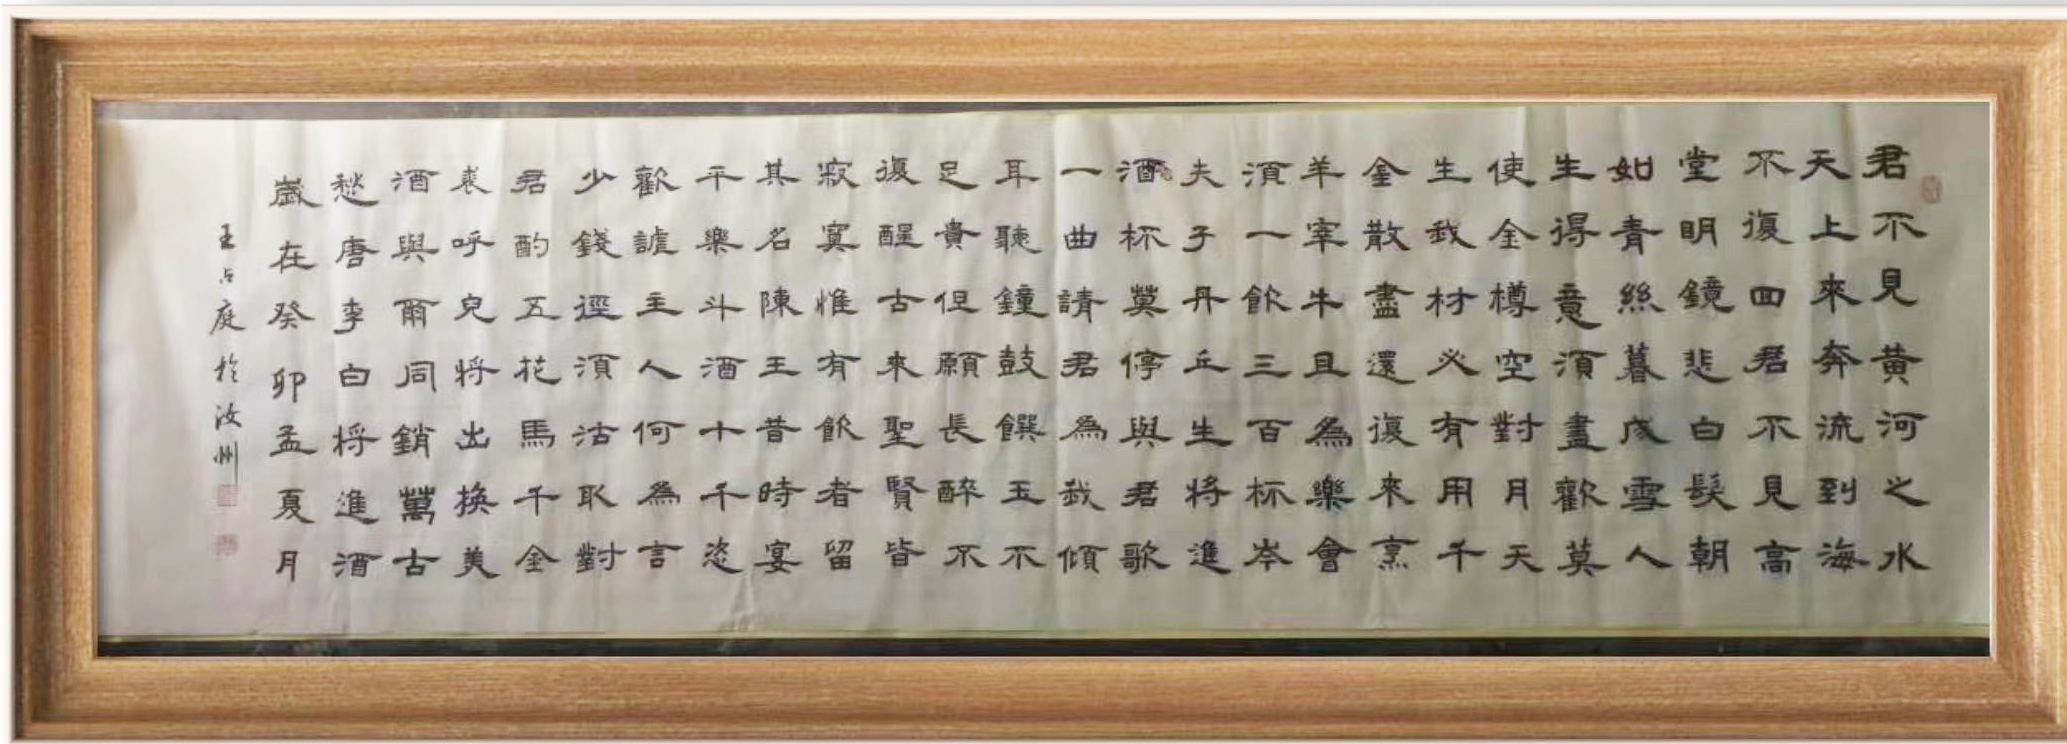 君不見黄河之水
天上來奔流到海
不復回君不見高
堂明鏡悲白髮朝
如青絲暮成雪人
生得意須盡歡莫
使金樽空對月天
生我材必有用千
金散盡還復來烹
羊宰牛且為樂會
須一飲三百杯岑
夫子丹丘生將進
酒杯莫停與君歌
一曲請君為我傾
耳聽鐘鼓饌玉不
足貴但願長醉不
復醒古來聖賢皆
寂寞惟有飲者留
其名陳王昔時宴
平樂斗酒十千恣
歡謔主人何為言
少錢徑須沽取對
君酌五花馬千金
裘呼兒將出換美
酒與爾同銷萬古
愁唐李白将進酒
歲在癸卯孟夏月
王占庭於汝州